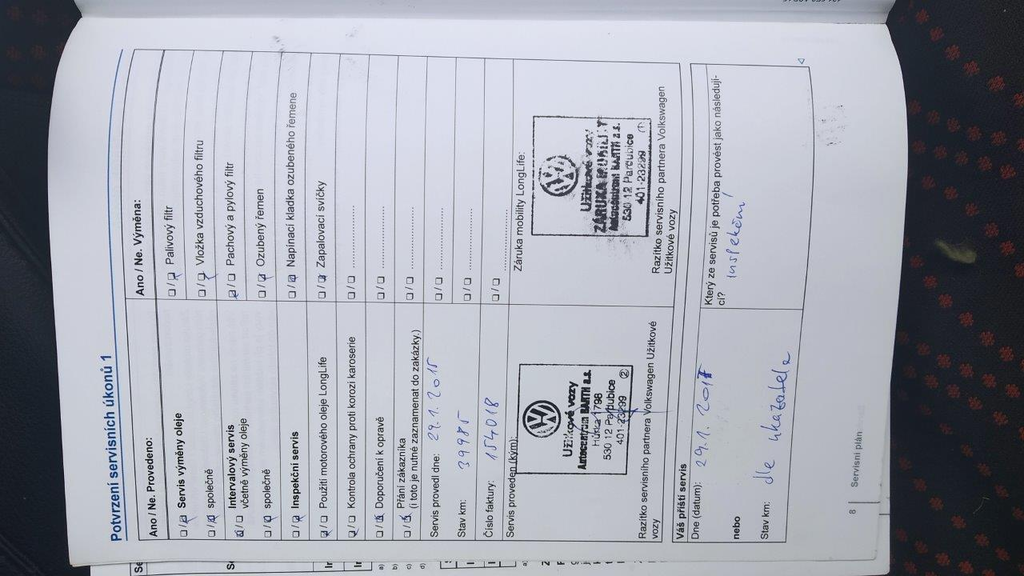 Potvrzení servisních úkonů 1
Ano / Ne. Provedeno:
Servis výměny oleje
společně
Intervalový servis
včetně výměny oleje
společně
Inspekční servis
Použití motorového oleje LongLife
Kontrola ochrany proti korozi karoserie
Doporučení k opravě
Přání zákazníka
(i toto je nutné zaznamenat do zakázky.)
Servis provedl dne: 29.1.2015
Stav km: 39985
Číslo faktury: 154018
Servis proveden (kým):
Užitkové vozy
Autocentrum BARTH a.s.
Hůrka 1798
530 12 Pardubice
401-23299 ②
Razítko servisního partnera Volkswagen Užitkové
vozy
Ano / Ne. Výměna:
Palivový filtr
Vložka vzduchového filtru
Pachový a pylový filtr
Ozubený řemen
Napínací kladka ozubeného řemene
Zapalovací svíčky
Záruka mobility LongLife:
ZÁRUKA MOBILITY
Autocentrum BARTH a.s.
530 12 Pardubice
401-23299 ①
Razítko servisního partnera Volkswagen
Užitkové vozy
Váš příští servis
Dne (datum): 29.1.2017
nebo
Stav km: dle ukazatele
Který ze servisů je potřeba provést jako následují-
cí? inspekční
8 Servisní plán